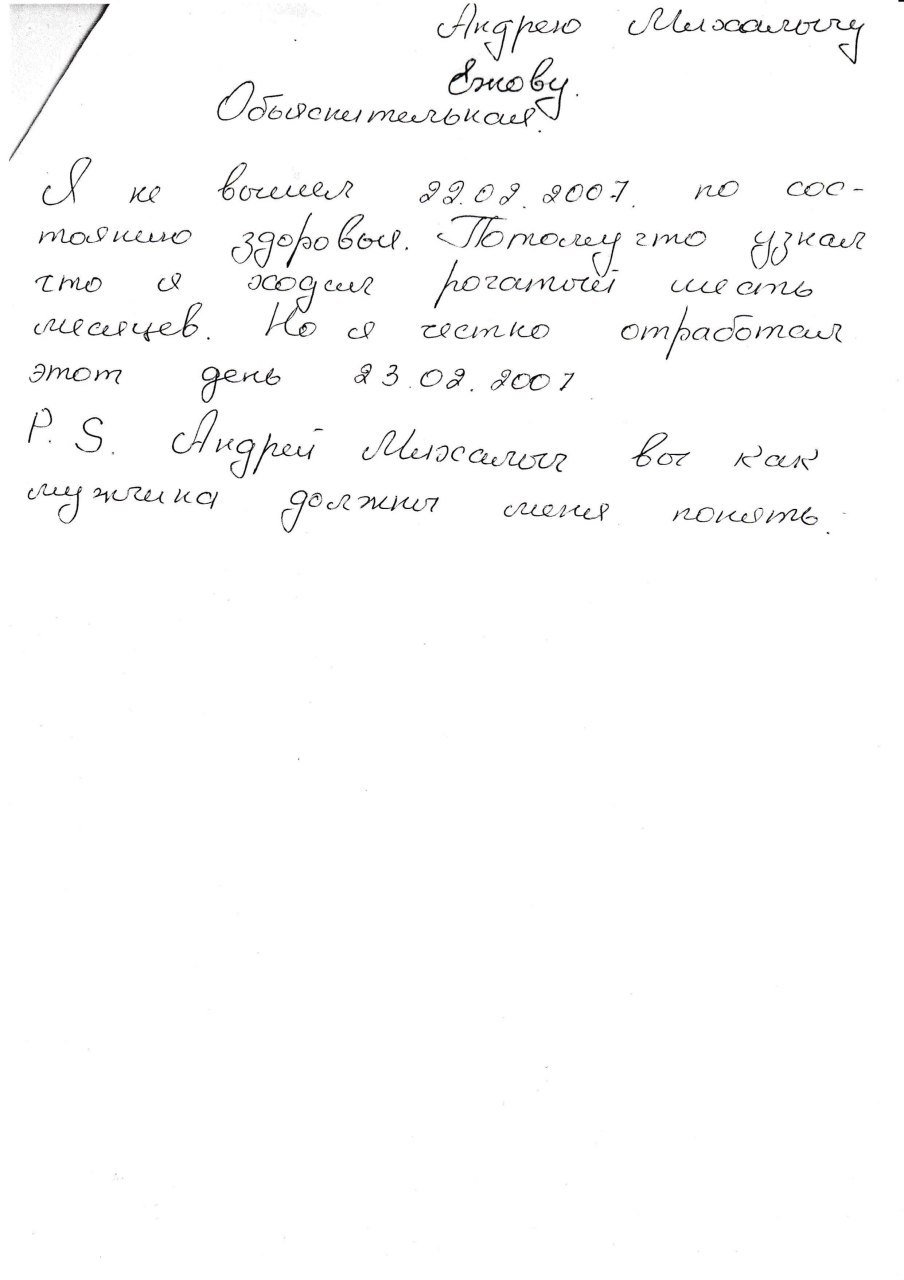 Андрею Михалычу
Ежову.
Объяснительная.
Я не вышел 22.02.2007. по сос-
тоянию здоровья. Потому что узнал
что я ходил рогатый шесть
месяцев. Но я честно отработал
этот день 23.02.2007
P.S. Андрей Михалыч вы как
мужчина должны меня понять.